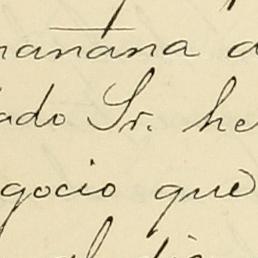 mañana a
ado Sr. he
gocio que
al dia